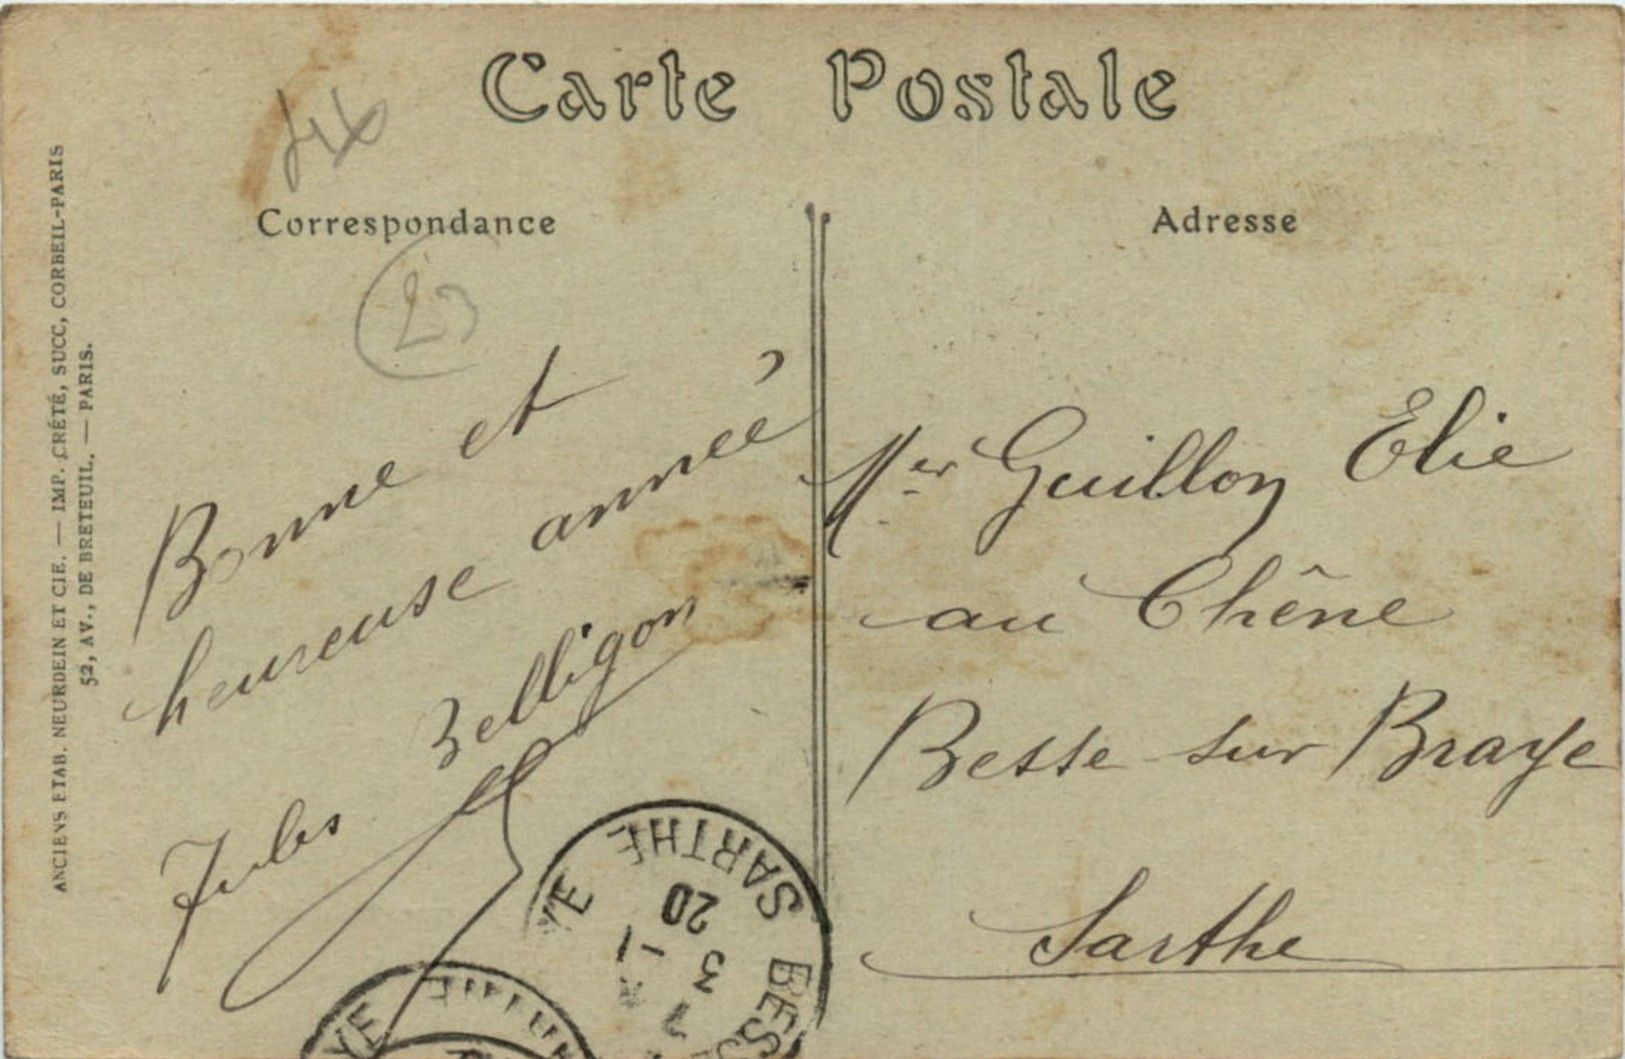 Carte Postale
Correspondance
Bonne et
heureuse année
Jules Belligon
Adresse
Mer Guillon Elie
au Chêne
Besse sur Braye
Sarthe
ANCIENS ETAB. NEURDEIN ET CIE. — IMP. CRÉTÉ, SUCC, CORBEIL-PARIS
52, AV., DE BRETEUIL. — PARIS.
SARTHE
20
3